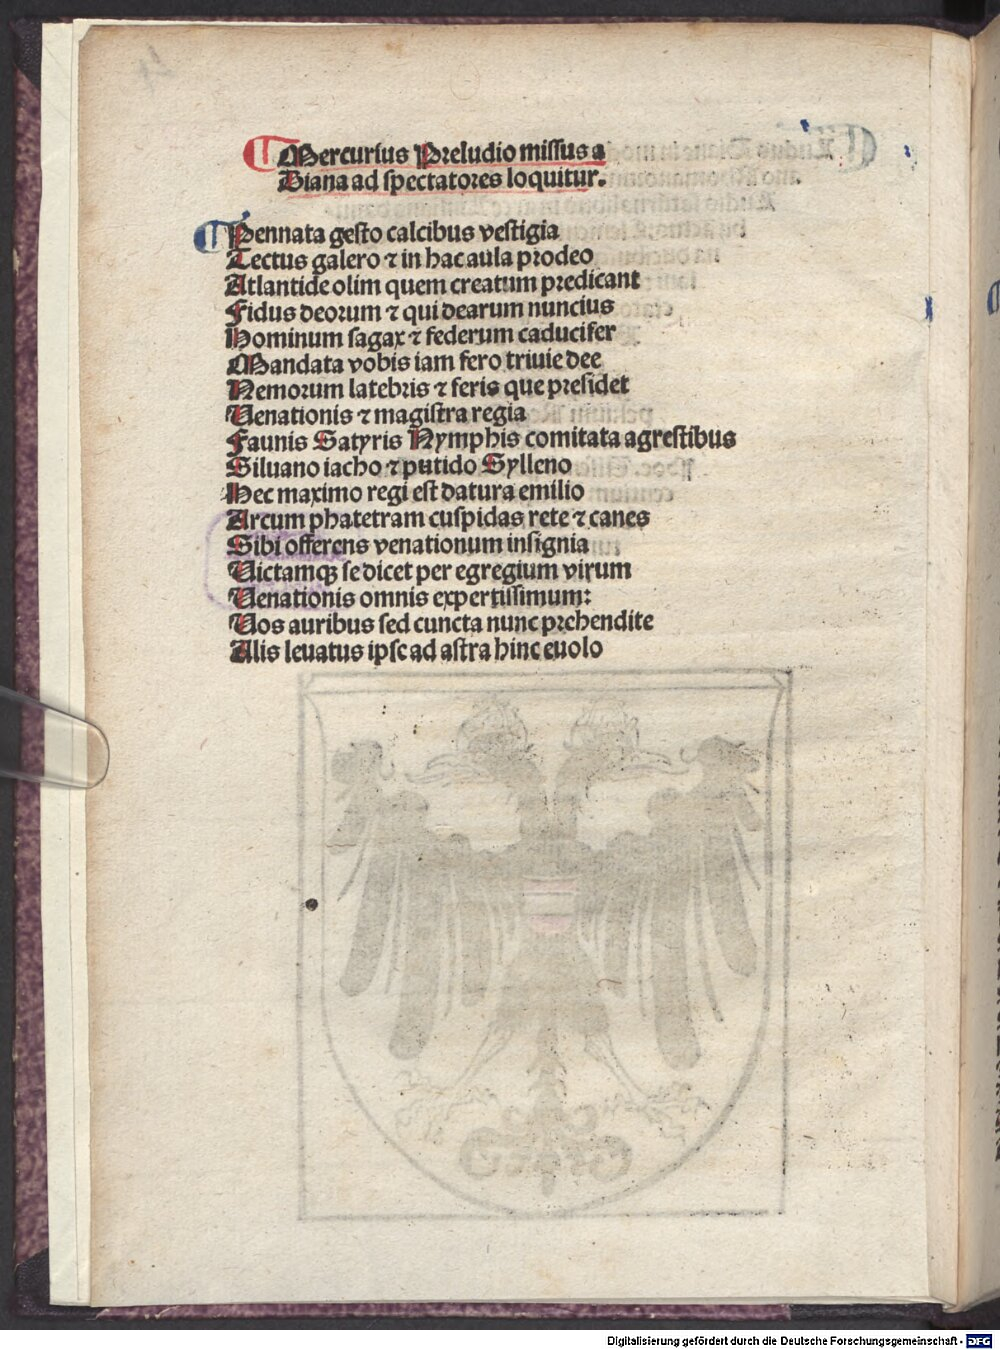 Mercurius Preludio missus a
Diana ad spectatores loquitur.
Pennata gesto calcibus vestigia
Tectus galero ⁊ in hac aula prodeo
Atlantide olim quem creatum predicant
Fidus deorum ⁊ qui dearum nuncius
Hominum sagax ⁊ federum caducifer
Mandata vobis iam fero triuie dee
Nemorum latebris ⁊ feris que presidet
Uenationis ⁊ magistra regia
Faunis Satyris Nymphis comitata agrestibus
Siluano iacho ⁊ putido Sylleno
Hec maximo regi est datura emilio
Arcum phatetram cuspidas rete ⁊ canes
Sibi offerens venationum insignia
Uictamqꝫ se dicet per egregium virum
Uenationis omnis expertissimum:
Uos auribus sed cuncta nunc prehendite
Alis leuatus ipse ad astra hinc euolo
Digitalisierung gefördert durch die Deutsche Forschungsgemeinschaft - DFG